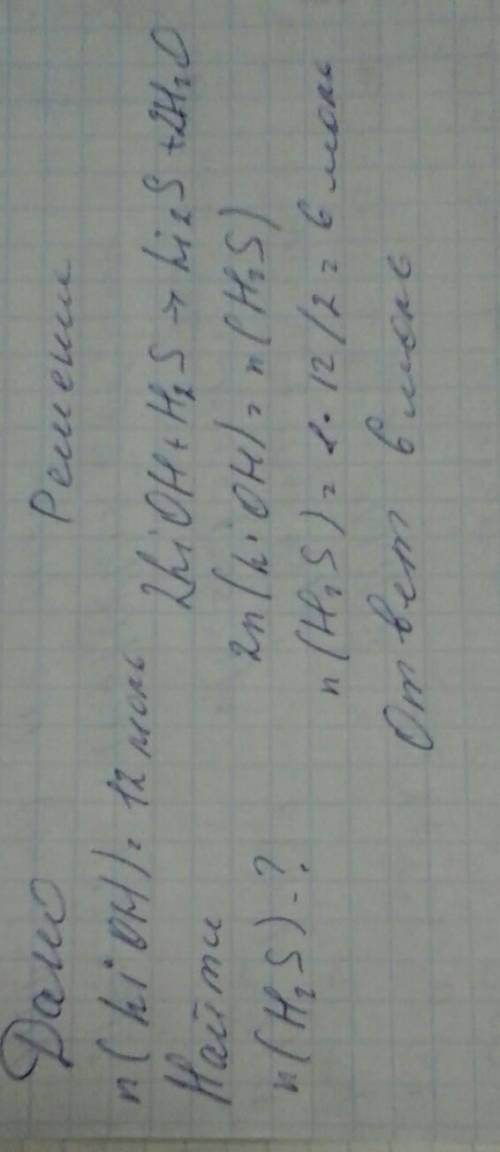 Дано
n(LiOH)=12 моль
Найти
n(H₂S)-?
Решении
2LiOH+H₂S→Li₂S+2H₂O
2n(LiOH)=n(H₂S)
n(H₂S)=1·12/2=6 моль
Ответ 6 моль